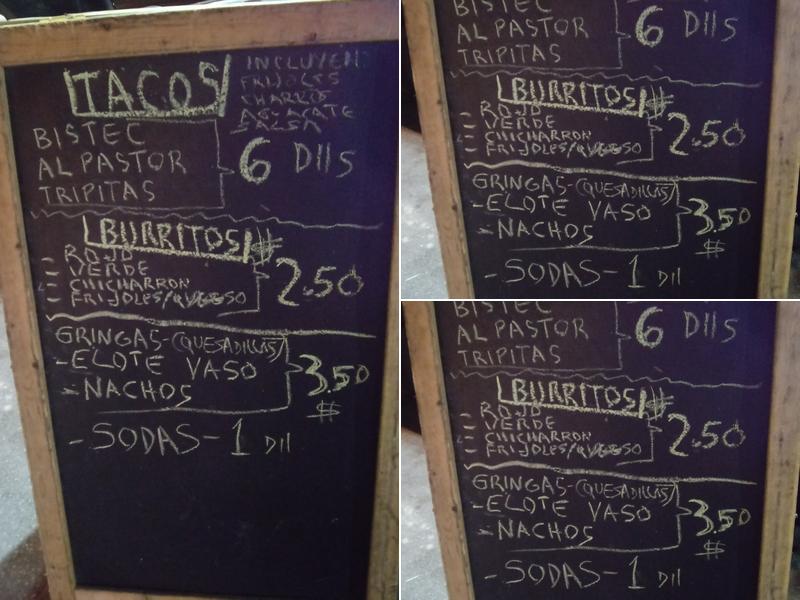 TACOS
INCLUYEN
FRIJOLES
CHARROS
AGUACATE
SALSA
BISTEC
AL PASTOR
TRIPITAS
6 Dlls
BURRITOS #
- ROJO
- VERDE
- CHICHARRON
- FRIJOLES/QUESO
2.50
GRINGAS-(QUESADILLAS)
-ELOTE VASO
-NACHOS
3.50
$
-SODAS-1 Dll
BISTEC
AL PASTOR
TRIPITAS
6 Dlls
BURRITOS #
- ROJO
- VERDE
- CHICHARRON
- FRIJOLES/QUESO
2.50
GRINGAS-(QUESADILLAS)
-ELOTE VASO
-NACHOS
3.50
$
-SODAS-1 Dll
BISTEC
AL PASTOR
TRIPITAS
6 Dlls
BURRITOS #
- ROJO
- VERDE
- CHICHARRON
- FRIJOLES/QUESO
2.50
GRINGAS-(QUESADILLAS)
-ELOTE VASO
-NACHOS
3.50
$
-SODAS-1 Dll